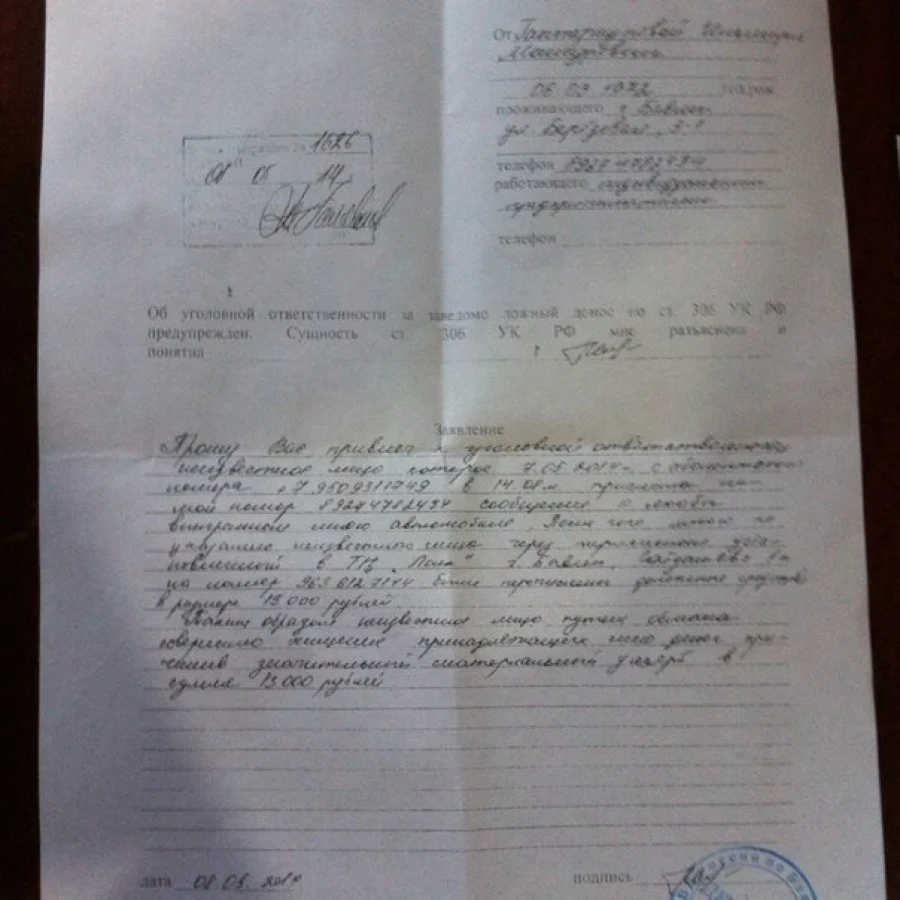 От
06 07 1972 год рож
проживающего г. Бавлы
ул. Берёзовая, 5-
телефон 89274782434
работающего индивидуальным
предпринимателем
телефон
1626
08 05 14
Об уголовной ответственности за заведомо ложный донос по ст. 306 УК РФ
предупрежден. Сущность ст 306 УК РФ мне разъяснена и
понятна
Заявление
Прошу Вас привлеч к уголовной ответственности
неизвестное лицо которое 7.05.2014г. с абонентского
номера +7 9509311749 в 14 08 м. прислало на
мой номер 89274782434 сообщение о якобы
выигранном мною автомобиле. После чего мною по
указанию неизвестного лица через терминал
в ТЦ г. Бавлы, Сайдашева
на номер 963 612 7144 были перечислены денежные средства
в размере 15 000 рублей.
Таким образом неизвестное лицо путем обмана
совершило хищение принадлежащих мне денег при-
чинив значительный материальный ущерб в
сумме 15 000 рублей
дата 08.05.2014 подпись